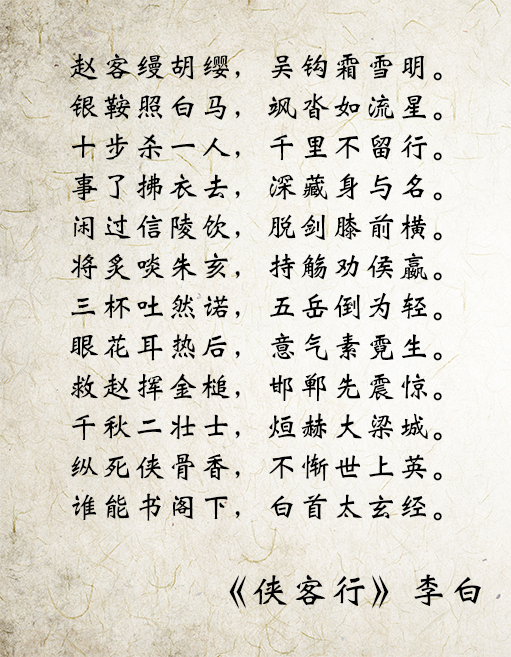 赵客缦胡缨，吴钩霜雪明。
银鞍照白马，飒沓如流星。
十步杀一人，千里不留行。
事了拂衣去，深藏身与名。
闲过信陵饮，脱剑膝前横。
将炙啖朱亥，持觞劝侯嬴。
三杯吐然诺，五岳倒为轻。
眼花耳热后，意气素霓生。
救赵挥金槌，邯郸先震惊。
千秋二壮士，烜赫大梁城。
纵死侠骨香，不惭世上英。
谁能书阁下，白首太玄经。
《侠客行》李白